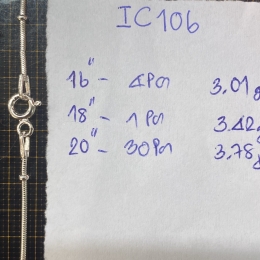 IC106
16" - 4Pcs 3.01g
18" - 1 Pcs 3.42
20" - 30Pcs 3.78g